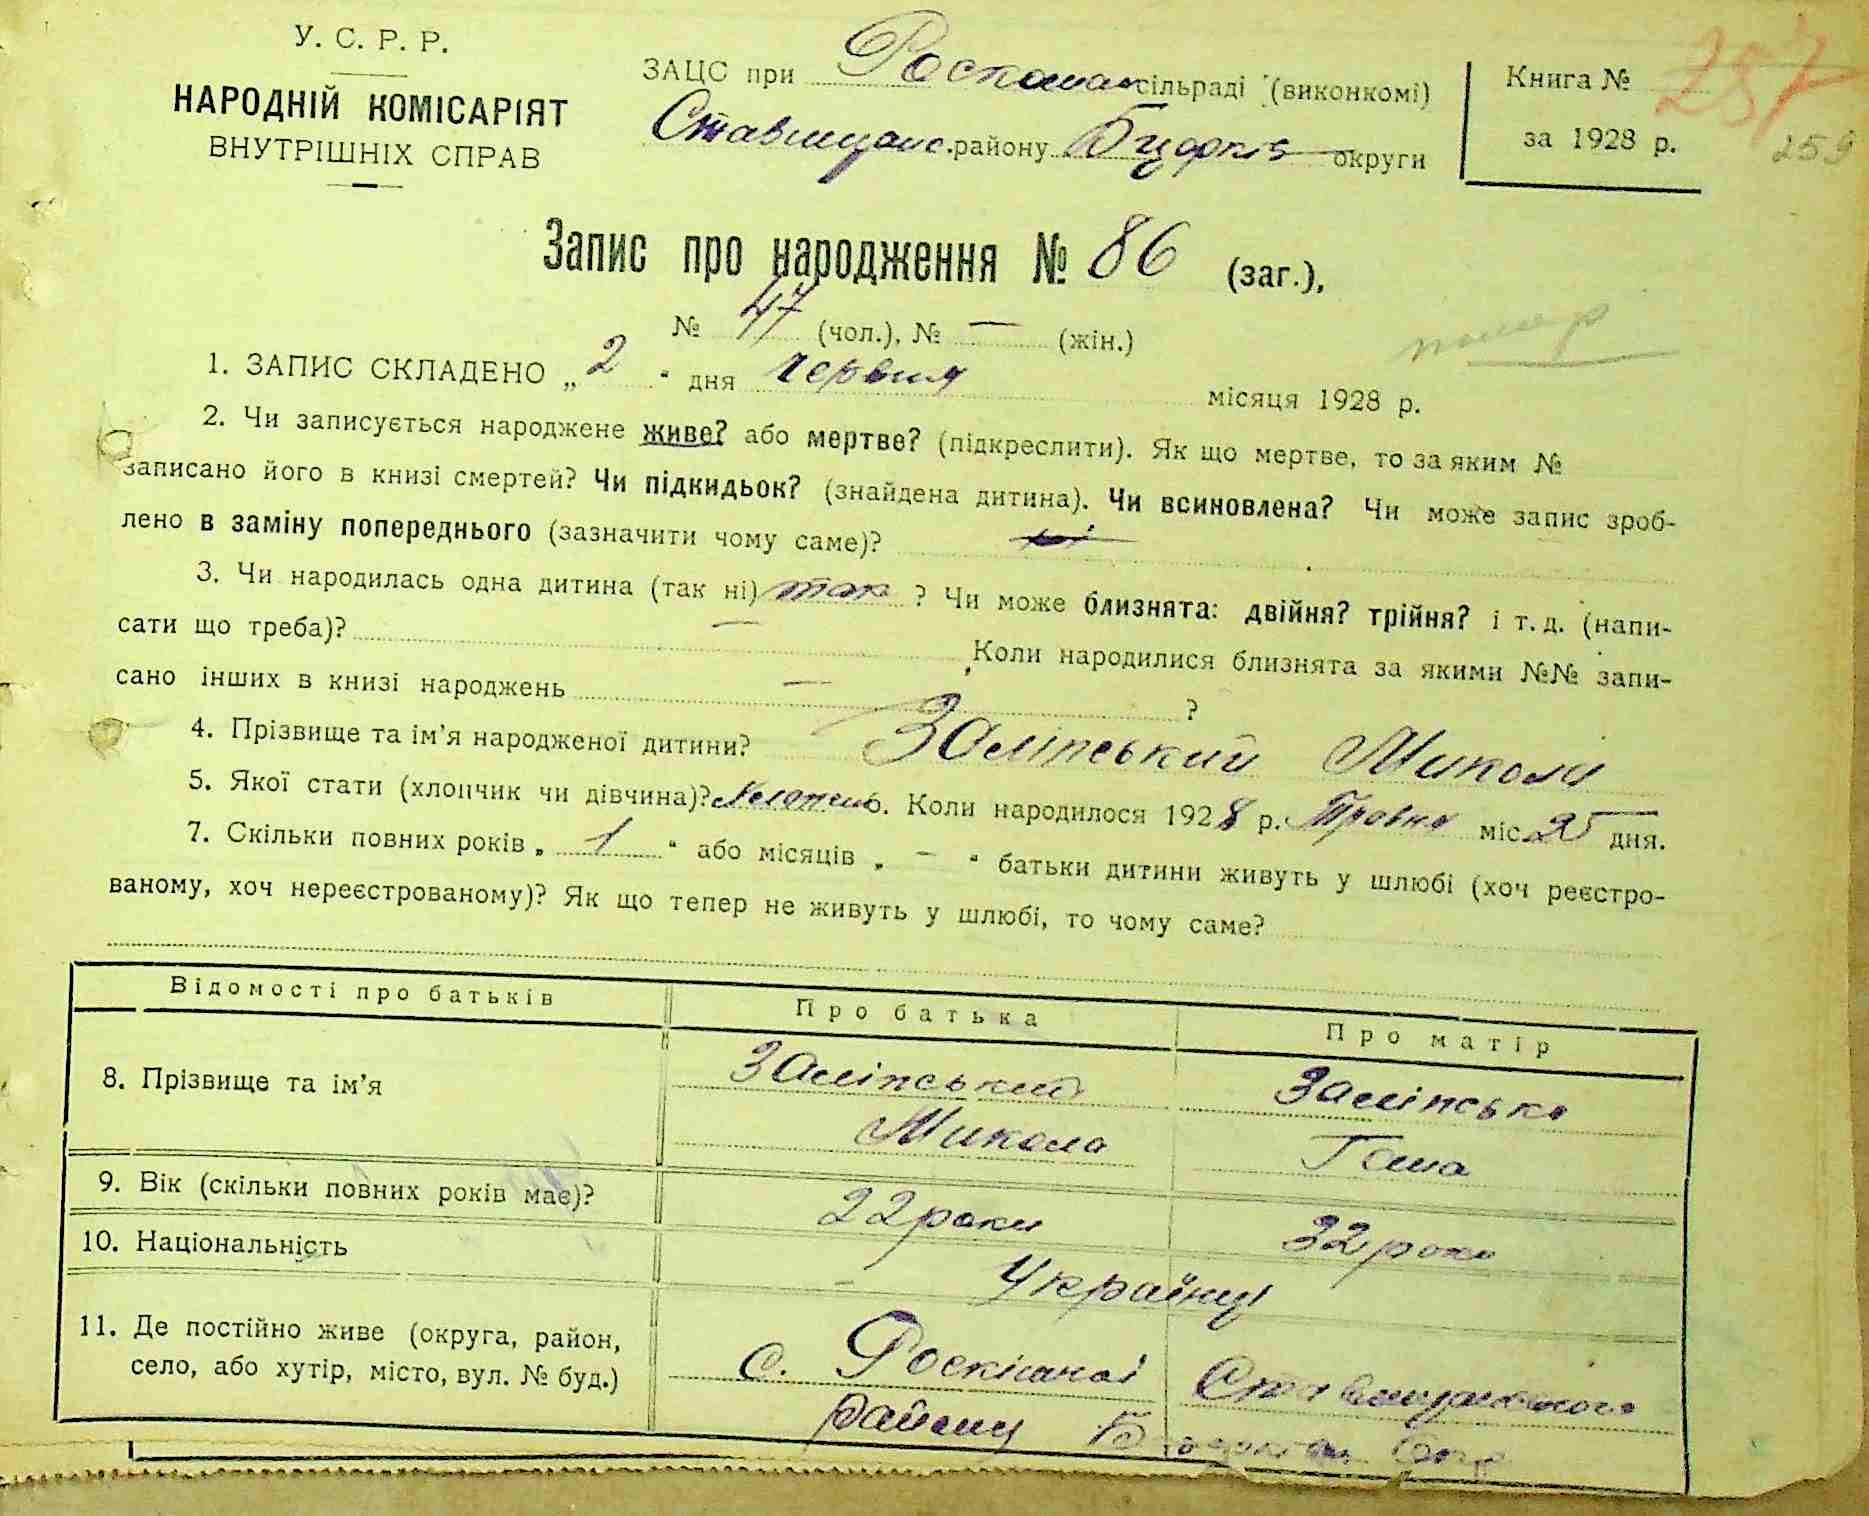 У. С. Р. Р.
НАРОДНІЙ КОМІСАРІЯТ
ВНУТРІШНІХ СПРАВ
ЗАЦС при сільраді (виконкомі)
Ставищанс. району Б Церків округи
Книга № 257
за 1928 р.
259
Запис про народження № 86 (заг.),
№ 47 (чол.), № — (жін.)
помер
1. ЗАПИС СКЛАДЕНО „ 2 " дня червня місяця 1928 р.
2. Чи записується народжене живе? або мертве? (підкреслити). Як що мертве, то за яким №
записано його в книзі смертей? Чи підкидьок? (знайдена дитина). Чи всиновлена? Чи може запис зроб-
лено в заміну попереднього (зазначити чому саме)?
3. Чи народилась одна дитина (так ні) так ? Чи може близнята: двійня? трійня? і т. д. (напи-
сати що треба)? — Коли народилися близнята за якими №№ запи-
сано інших в книзі народжень — ?
4. Прізвище та ім'я народженої дитини? Заліпський Микола
5. Якої стати (хлопчик чи дівчина)? 6. Коли народилося 1928 р. Травня міс. 25 дня.
7. Скільки повних років „ 1 " або місяців „ — " батьки дитини живуть у шлюбі (хоч реєстро-
ваному, хоч нереєстрованому)? Як що тепер не живуть у шлюбі, то чому саме?
Відомості про батьків Про батька Про матір
8. Прізвище та ім'я Заліпський Заліпська
Микола Гана
9. Вік (скільки повних років має)? 22 роки 32 роки
10. Національність Українці
11. Де постійно живе (округа, район, с. Роскішної Ставищанського
село, або хутір, місто, вул. № буд.) району